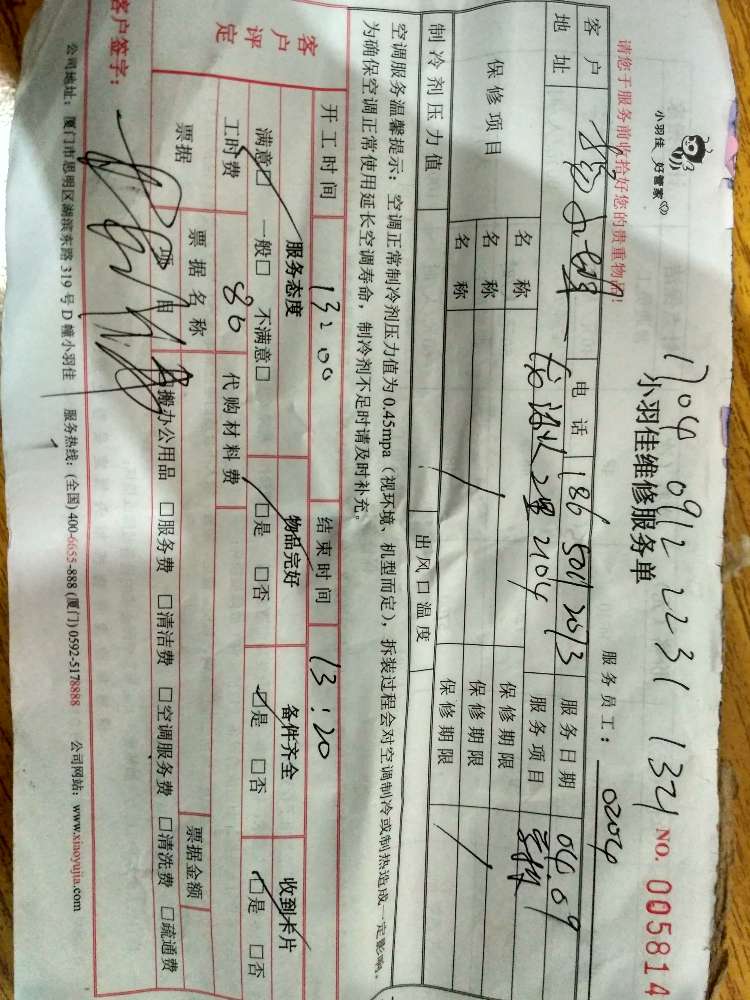 小羽佳 好管家
1704 0912 2231 1321
小羽佳维修服务单
NO. 005814
请您于服务前收拾好您的贵重物品!
服务员工: 0204
客户 电话 186 5011 2013 服务日期 04.09
地址 2104 服务项目
保修项目 名称 保修期限
名称 保修期限
名称 / 保修期限 /
制冷剂压力值 出风口温度
空调服务温馨提示: 空调正常制冷剂压力值为0.45mpa (视环境、机型而定), 拆装过程会对空调制冷或制热造成一定影响。
为确保空调正常使用延长空调寿命, 制冷剂不足时请及时补充。
开工时间 13:00 结束时间 13:20
客户评定 服务态度 物品完好 备件齐全 收到卡片
满意□ 一般□ 不满意□ □是 □否 □是 □否 □是 □否
工时费 80 代购材料费
票据 票据名称 票据金额
项目 □搬办公用品 □服务费 □清洁费 □空调服务费 □清洗费 □疏通费
客户签字:
公司地址: 厦门市思明区湖滨东路319号D幢小羽佳 服务热线: (全国) 400-6655-888 (厦门) 0592-5178888 公司网站: www.xiaoyujia.com